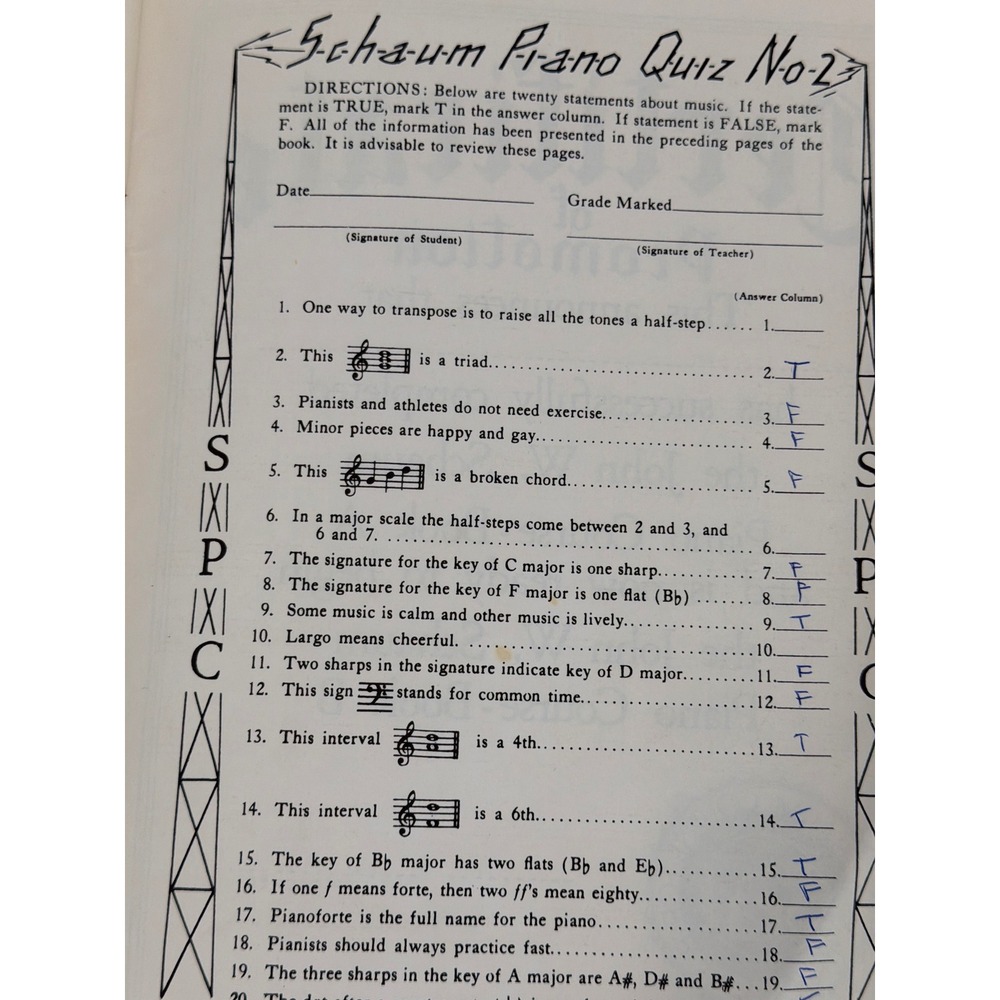 Schaum Piano Quiz No-2
DIRECTIONS: Below are twenty statements about music. If the state-
ment is TRUE, mark T in the answer column. If statement is FALSE, mark
F. All of the information has been presented in the preceding pages of the
book. It is advisable to review these pages.
Date Grade Marked
(Signature of Student) (Signature of Teacher)
(Answer Column)
1. One way to transpose is to raise all the tones a half-step...... 1.
2. This is a triad. 2. T
3. Pianists and athletes do not need exercise. 3. F
4. Minor pieces are happy and gay. 4. F
5. This is a broken chord. 5. F
6. In a major scale the half-steps come between 2 and 3, and
6 and 7. 6.
7. The signature for the key of C major is one sharp. 7. F
8. The signature for the key of F major is one flat (B♭) ....... 8. F
9. Some music is calm and other music is lively. 9. T
10. Largo means cheerful. 10.
11. Two sharps in the signature indicate key of D major. 11. F
12. This sign stands for common time. 12. F
13. This interval is a 4th. 13. T
14. This interval is a 6th. 14. T
15. The key of B♭ major has two flats (B♭ and E♭). 15. T
16. If one f means forte, then two ff's mean eighty. 16. F
17. Pianoforte is the full name for the piano. 17. T
18. Pianists should always practice fast. 18. F
19. The three sharps in the key of A major are A#, D# and B#...19. F
S
P
C
S
P
C